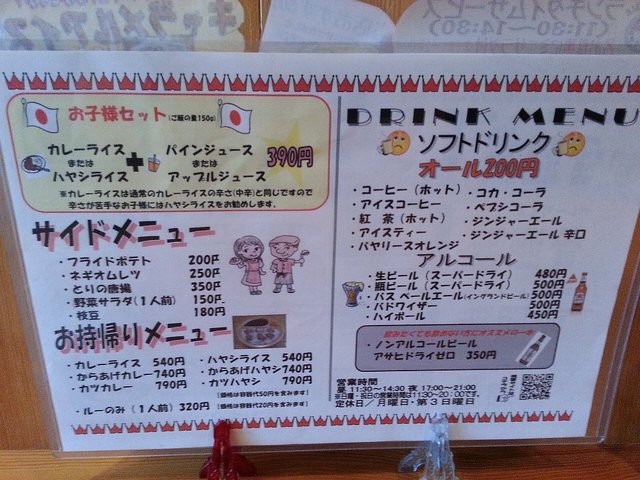 お子様セット(ご飯の量150g)
カレーライス
または
ハヤシライス
+
パインジュース
または
アップルジュース
390円
※カレーライスは通常のカレーライスの辛さ(中辛)と同じですので
辛さが苦手なお子様にはハヤシライスをお勧めします。
サイドメニュー
・フライドポテト 200円
・ネギオムレツ 250円
・とりの唐揚 350円
・野菜サラダ(1人前) 150円
・枝豆 180円
お持帰りメニュー
・カレーライス 540円
・からあげカレー740円
・カツカレー 790円
・ハヤシライス 540円
・からあげハヤシ740円
・カツハヤシ 790円
(価格は容器代50円を含みます)
・ルーのみ(1人前)320円
(価格は容器代20円を含みます)
DRINK MENU
ソフトドリンク
オール200円
・コーヒー(ホット)
・アイスコーヒー
・紅 茶(ホット)
・アイスティー
・バヤリースオレンジ
・コカ・コーラ
・ペプシコーラ
・ジンジャーエール
・ジンジャーエール 辛口
アルコール
・生ビール(スーパードライ) 480円
・瓶ビール(スーパードライ) 500円
・バス ペールエール(イングランドビール)500円
・バドワイザー 500円
・ハイボール 450円
飲みたくても飲めない方にオススメのビール
・ノンアルコールビール
アサヒドライゼロ 350円
営業時間
昼 11:30~14:30 夜 17:00~21:00
※日曜・祝日の営業時間は11:30~20:00です。
定休日/月曜日・第3日曜日